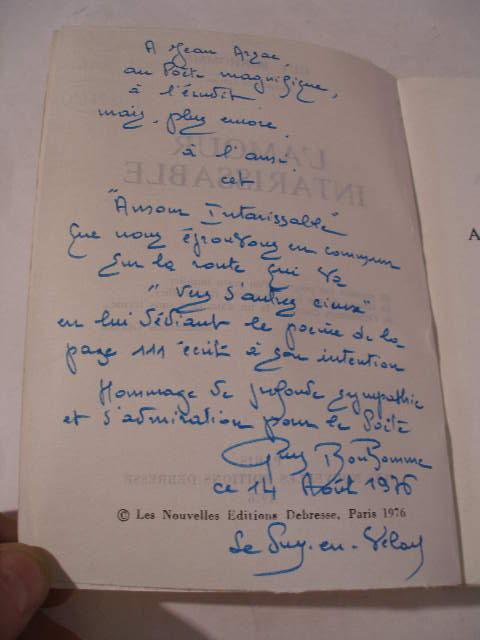 A Jean Arzac,
au Poète magnifique,
à l'érudit
mais, plus encore,
à l'ami
cet
"Amour Intarissable"
que nous éprouvons en commun
sur la route qui va
"Vers d'autres cieux"
en lui dédiant le poème de la
page 111 écrit à son intention
Hommage de profonde sympathie
et d'admiration pour le Poète
Guy Bonhomme
ce 14 Août 1976
© Les Nouvelles Editions Debresse, Paris 1976
Le Puy-en-Velay
L'AMOUR
INTARISSABLE
A